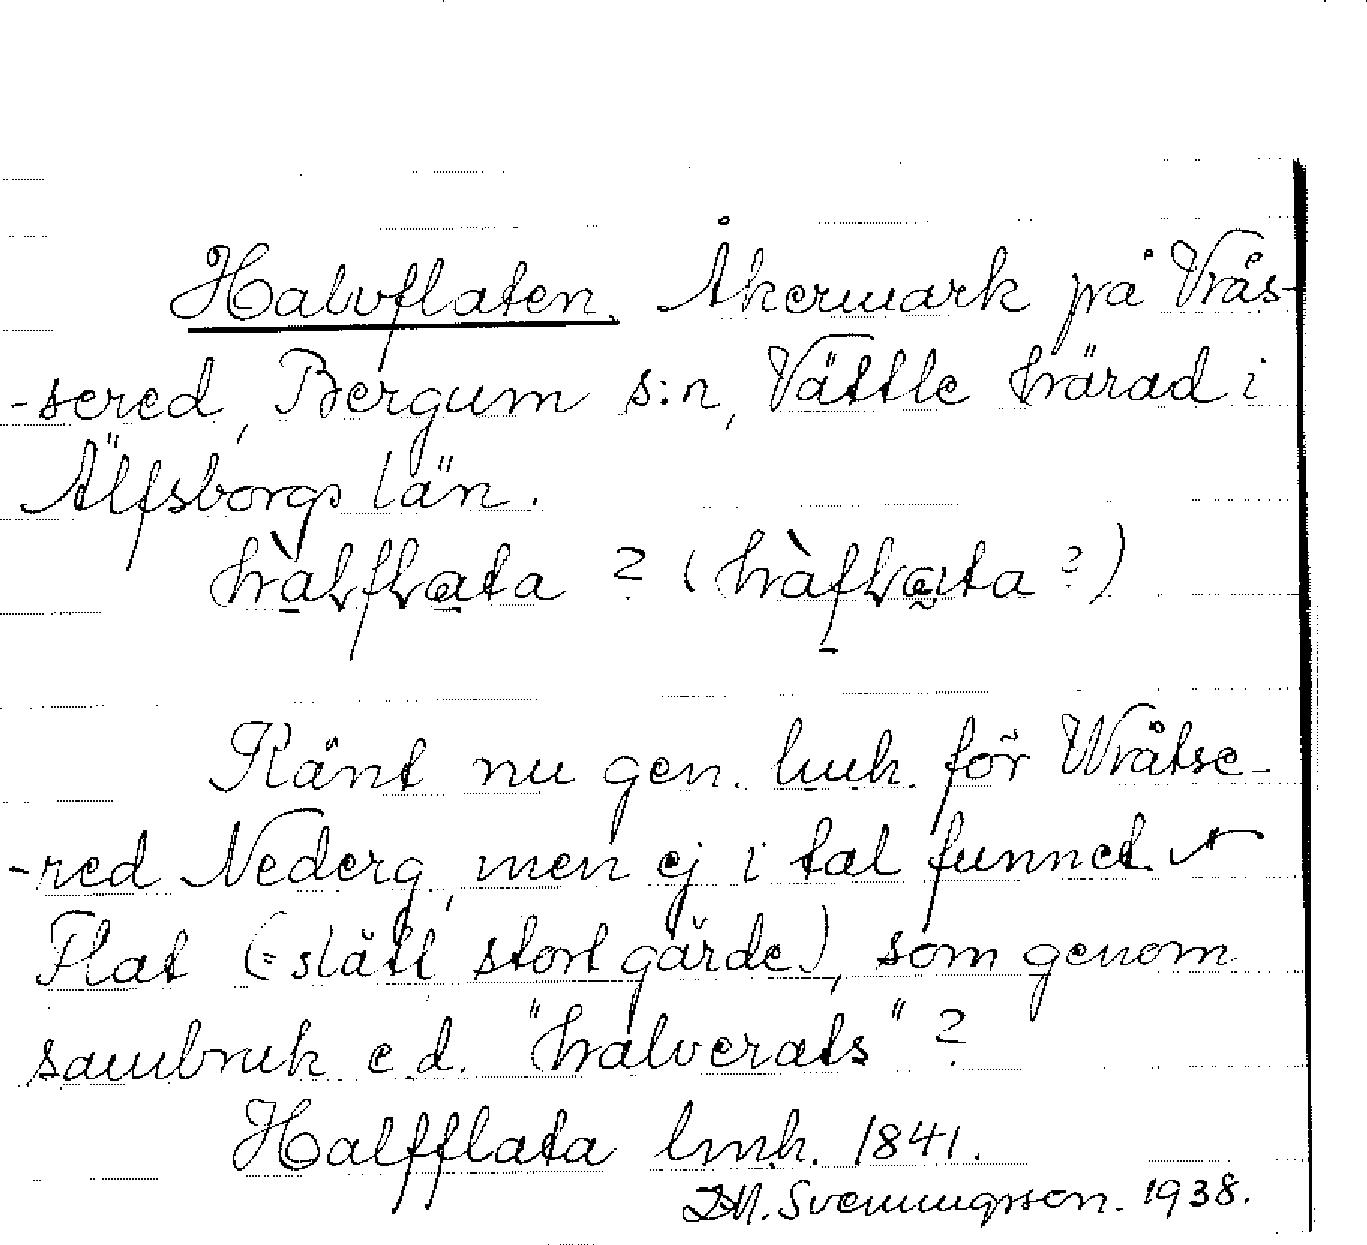 Halvflaten. Åkermark på Vräs-
-sered, Bergum s:n, Vättle härad i
Älfsborgs län.
hàlflata ? (hàflata ?)
Känt nu gen. lmk. för Wråtse-
-red Nederg, men ej i tal funnet.
Flat (= slätt stort gärde), som genom
sambruk e.d. "halverats" ?
Halfflata lmk. 1841.
Svenningsson. 1938.